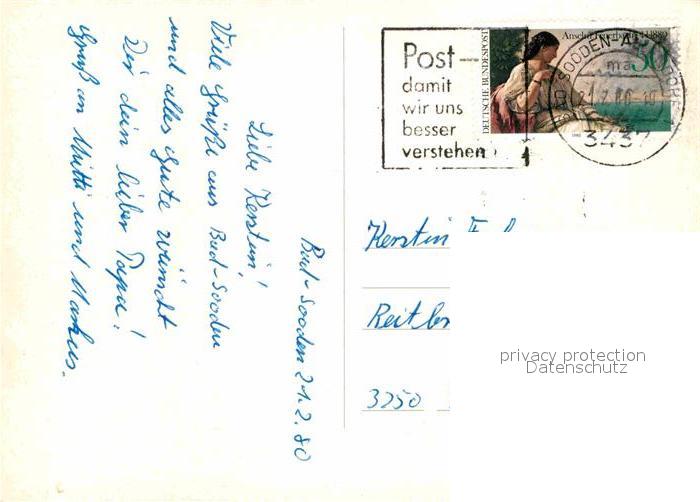 Bad-Sooden 21.2.80
Liebe Kerstin!
Viele Grüße aus Bad-Sooden
und alles Gute wünscht
Dir dein lieber Papa!
Gruß an Mutti und Markus.
Post-
damit
wir uns
besser
verstehen
DEUTSCHE BUNDESPOST
Anselm Feuerbach
1880
50
SOODEN-A
ma
21.2.80
3437
Kerstin
Reit
3250
privacy protection
Datenschutz